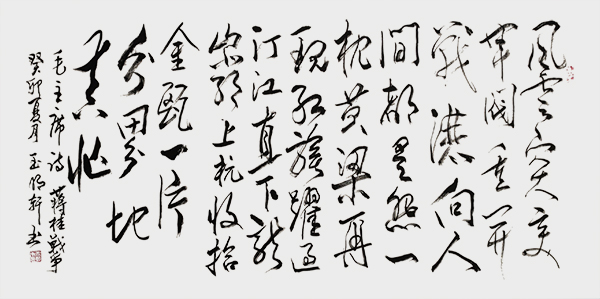 風云突变
军阀重开
戰洒向人
间都是怨一
枕黄粱再
现红旗躍过
汀江直下龍
岩上杭收拾
金瓯一片
分田分地
真忙
毛主席诗 蒋桂戰争
癸卯夏月 玉明轩书